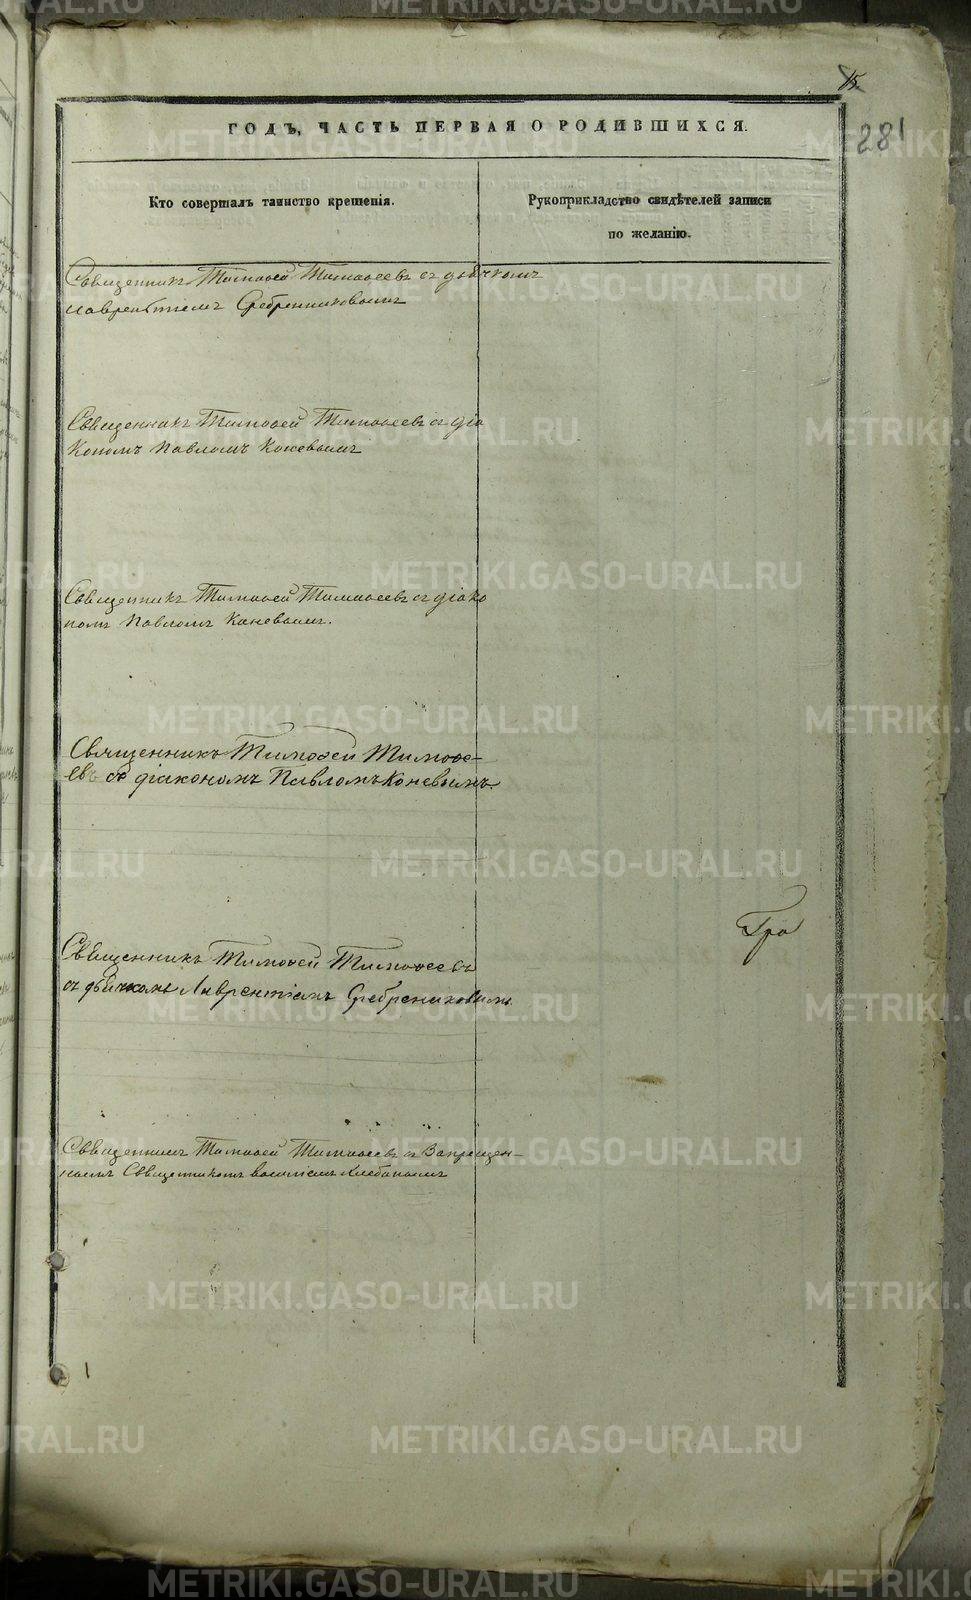 15.
281
ГОДЪ, ЧАСТЬ ПЕРВАЯ О РОДИВШИХСЯ.
Кто совершалъ таинство крещенія.
Рукоприкладство свидѣтелей записи
по желанію.
Священникъ Тимоѳей Тимоѳеевъ съ дьячкомъ
Лаврентіемъ Сребренниковымъ
Священникъ Тимоѳей Тимоѳеевъ съ діа
кономъ Павломъ Коневымъ
Священникъ Тимоѳей Тимоѳеевъ съ діако
номъ Павломъ Коневымъ.
Священникъ Тимоѳей Тимоѳе-
евъ съ діакономъ Павломъ Коневымъ.
Гра
Священникъ Тимоѳей Тимоѳеевъ
съ дьячкомъ Лаврентіемъ Сребрениковымъ.
Священникъ Тимоѳей Тимоѳеевъ съ Запрещен-
нымъ Священникомъ
METRIKI.GASO-URAL.RU